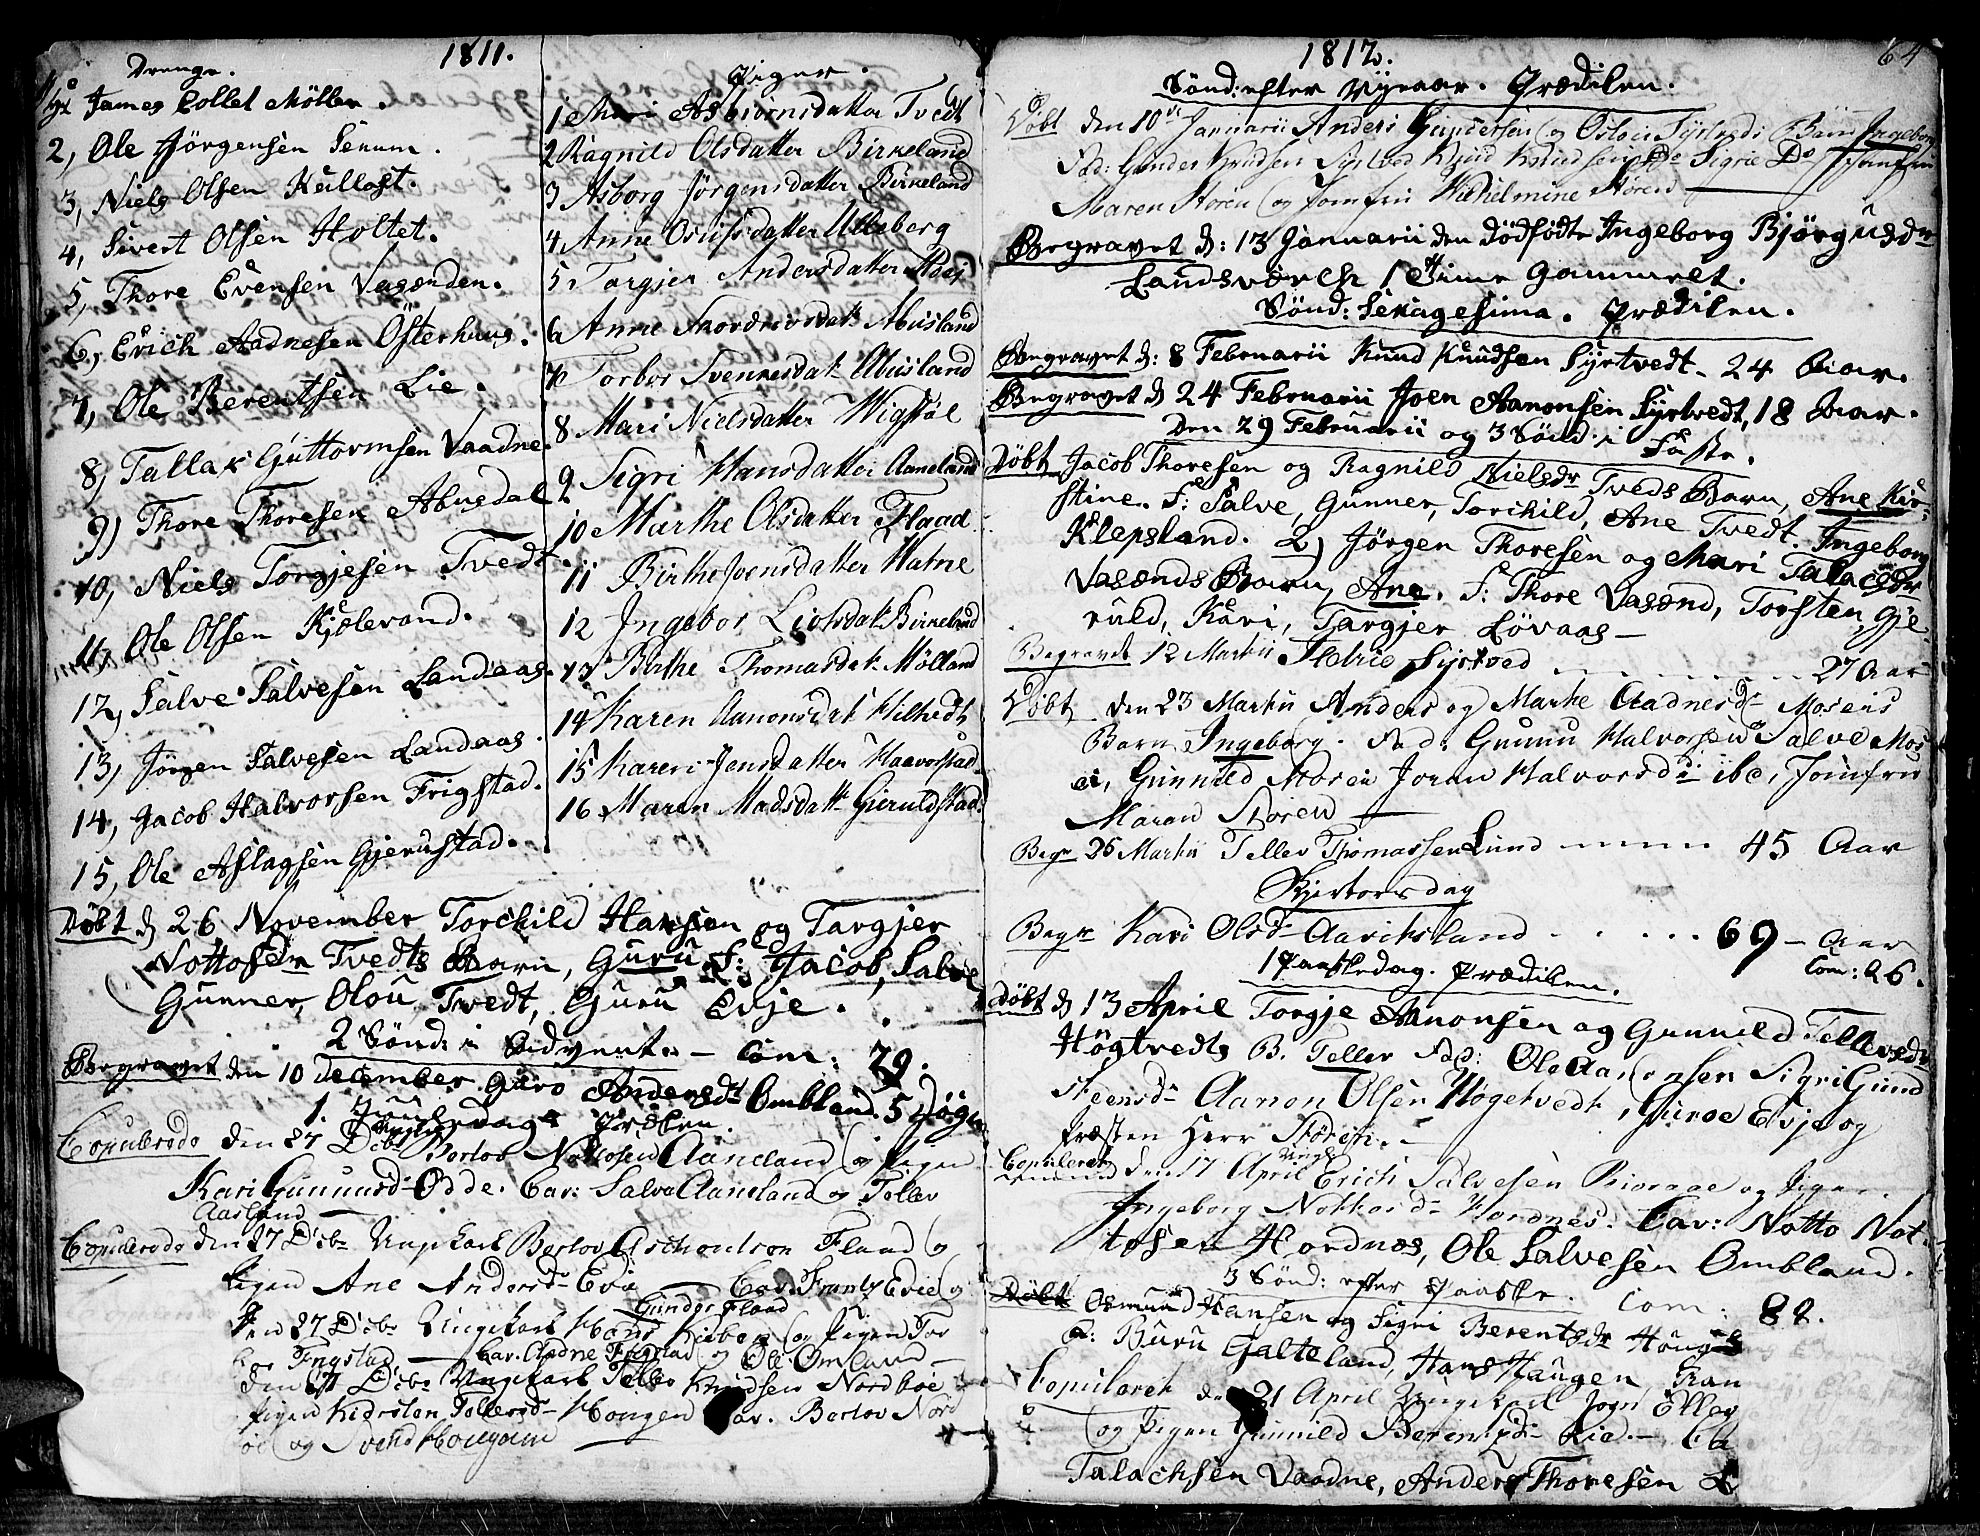 1811.
Drenge.
James Collet Möller.
2, Ole Jörgensen Senum.
3, Niels Olsen Kulloft.
4, Sivert Olsen Holtet.
5, Thore Evensen Vasenden.
6, Erich Aadnesen Österhuus.
7, Ole Berentsen Lie.
8, Tallak Guttormsen Vaadne.
9) Thore Thoresen Abusdal
10, Niels Torgjesen Tvedt.
11, Ole Olsen Kjölevand.
12, Salve Salvesen Landaas.
13, Jörgen Salvesen Landaas.
14, Jacob Halvorsen Frigstad.
15, Ole Aslagsen Gjerustad.
Piger.
1 Mari Asbiörnsdatter Tvedt
2 Ragnild Olsdatter Birkeland
3 Asborg Jörgensdatter Birkeland
4 Anne Osulfsdatter Uleberg
5 Torgjer Andersdatter
6 Anne Abusland
7 Torbor Svennesdat. Abusland
8 Mari Nielsdatter Wigstöl
9 Sigri Hansdatter Aaneland
10 Marthe Olsdatter Flaad
11 Birthe Jvensdatter Hatne
12 Ingebor Liolsdat. Birkeland
13 Birthe Thomasdat. Mölland
14 Karen Aanonsdat.
15 Karen Jensdatter Haavorstad
16 Maren Madsdatt. Gieruldstad
Döbt d 26 November Torchild Hansen og Targjer
Nottosdr Tvedts Barn, Guru F: Jacob, Salve
Gunner, Olou Tvedt, Guru Evje.
2 Sönd: i Advent. - Com: 29.
Begravet den 10 December Guro Andersdt Ombland. 5 Døgn
1. Juuledag. Prædiken.
Copulerede den 27 Dcbr Berlov Nottosen Aaneland og Pigen
Kari Gunnusd- Odde. Cav: Salve Aaneland og Tellev
Aasland
Copulerede den 27 Dcbr Ungkarl Berlov Flaad og
Pigen Ane Andersd- Evie - Cav: Frantz Evie og
Gunder Flaad
den 27 Dcbr Ungekarl og Pigen Tor
bor Frigstad - Cav. Aadne Frigstad og Ole Omland -
den 27 Dcbr Ungekarl Tellev Knudsen Nordböe
Pigen Kiersten Tellevsd- Hougen Cav. Berlov Nord
böe og Svend Hougen
1812.
64
Sönd: efter Nyeaar. Prædiken.
Döbt den 10de Januarii Anders Gundersen og Oslou Syrtveds Barn Ingeborg
Fad: Gunder Knudsen Syrtved Knud Knudsen Do Sigrie Do Jomfru
Maren Stören og Jomfru Wilhelmine Stören
Begravet d: 13 Januarii den Dödfödte Ingeborg Björgusdr
Landsværch 1 Time gammelt.
Sönd: Sexagesima. Prædiken.
Begravet d: 8 Februarii Knud Knudsen Syrtvedt - 24 Aar.
Begravet d 24 Februarii Joen Aanonsen Syrtvedt, 18 Aar.
Den 29 Februarii og 3 Sönd: i Faste.
Döbt Jacob Thoresen og Ragnild Nielsdr Tveds Barn, Ane Kir-
stine. F: Salve, Gunner, Torchild, Ane Tvedt Ingeborg
Klepsland. 2) Jörgen Thoresen og Mari Talacsdr
Vasends Barn, Ane. F: Thore Vasend, Torsten, Gje
ruld, Kari, Targjer Lövaas -
Begravet 12 Martii Syrtved - 27 Aar
Döbt den 23 Martii Anders og Marte Aadnesd- Moseis
Barn Ingeborg. Fad: Gunnu Halvorsen Salve Mos
ei, Gunnild Mosei Joran Halvorsd- ibd, Jomfru
Maren Stören -
Begr 26 Martii Tellev Thomassen Lund - 45 Aar
Skjertorsdag
Begr Kari Olsd- Aarikstand . . . . . 69 - Aar
Com: 26.
1 Paaskedag. Prædiken.
Döbt d 13 April Torgje Aanonsen og Gunnild Tellevsdr
Högtvedts B. Tellev Fad: Ole Aanonsen Sigri Gund
steensd- Aanon Olsen Högetvedt, Guroe Evje og
Præsten Herr Stören. -
Copuleret den 17 April Ungk. Erich Salvesen og Pigen
Ingeborg Nottosd- Hordnes. Cav: Notto Not-
tosen Hordnes, Ole Salvesen Ombland.
3 Sönd: efter Paaske. Com: 82.
Döbt Osmund Hansen og Sigri Berentsdr Hougs
B: Buru Galteland, Hans Haugen, Ran
Copuleret den 21 April Ungekarl Jogn Ellev
og Pigen Gunnild Berentsd- Lie. - Ca
Talachsen Vaadne, Anders Thoresen L